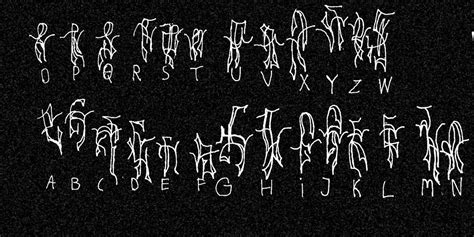 O P Q R S T U V X Y Z W
A B C D E F G H i J K L M N